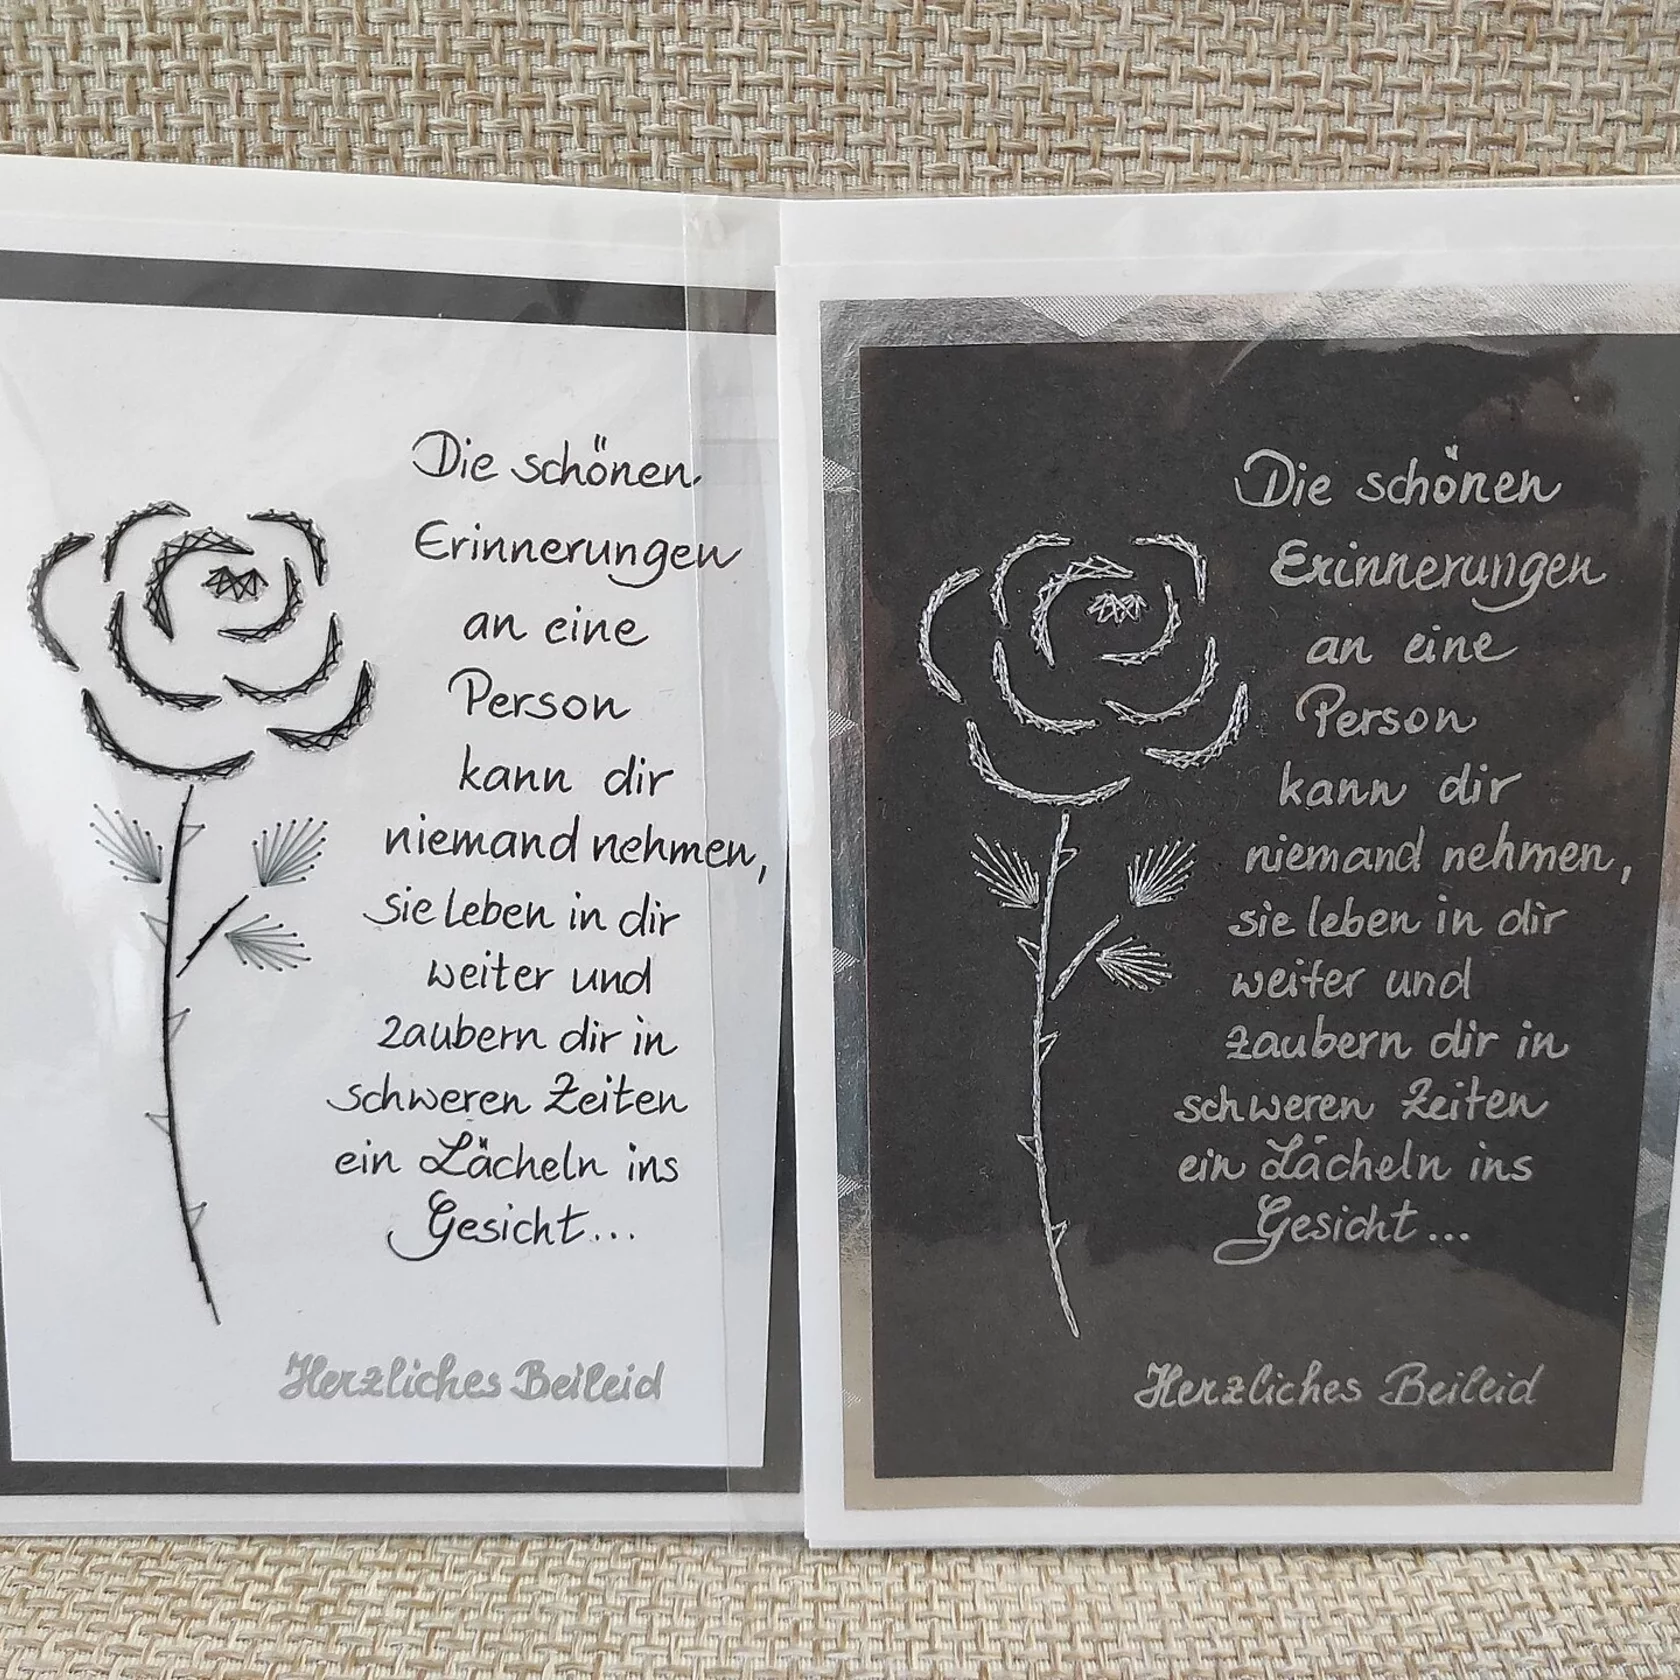 Die schönen
Erinnerungen
an eine
Person
kann dir
niemand nehmen,
sie leben in dir
weiter und
zaubern dir in
schweren Zeiten
ein Lächeln ins
Gesicht...
Herzliches Beileid
Die schönen
Erinnerungen
an eine
Person
kann dir
niemand nehmen,
sie leben in dir
weiter und
zaubern dir in
schweren Zeiten
ein Lächeln ins
Gesicht...
Herzliches Beileid